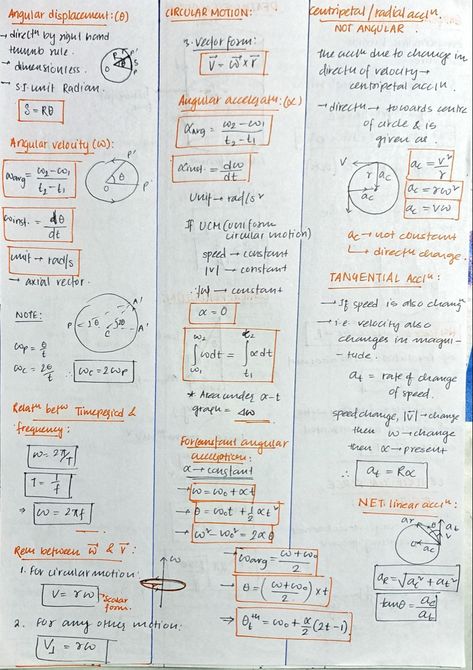 Angular displacement: (θ)
→ directⁿ by right hand
thumb rule.
→ dimensionless.
→ SI unit Radian.
S = Rθ
Angular velocity (ω):
ωavg = ω2-ω1 / t2-t1
ωinst. = dθ/dt
unit → rad/s
→ axial vector.
NOTE:
ωP = θ/t
ωC = 2θ/t
∴ ωC = 2ωP
Relatⁿ betⁿ Timeperiod &
frequency:
ω = 2π/T
T = 1/f
⇒ ω = 2πf
Relⁿ between ω⃗ & v⃗ :
1. For circular motion:
V = rω
→ Scalar
form.
2. For any other motion:
V⊥ = rω
CIRCULAR MOTION:
3. vector form:
V⃗ = ω⃗ × r⃗
Angular accelerⁿ: (α)
αavg = ω2-ω1 / t2-t1
αinst. = dω/dt
Unit → rad/s²
If UCM (uniform
circular motion)
speed → constant
|V| → constant
∴ |ω| → constant
α = 0
ω2∫ω1 ωdt = t2∫t1 αdt
* Area under α-t
graph = Δω
For constant angular
α → constant
→ ω = ω0 + αt
→ θ = ω0t + 1/2 αt²
→ ω² - ω0² = 2αθ
→ ωavg = ω+ω0 / 2
→ θ = (ω+ω0 / 2) × t
⇒ θtᵗʰ = ω0 + α/2 (2t-1)
centripetal / radial accⁿ.
NOT ANGULAR.
The accⁿ due to change in
directⁿ of velocity →
centripetal accⁿ.
→ directⁿ → towards centre
of circle & is
given as.
V
r
ac
ac = v²/r
ac = rω²
ac = Vω
ac → not constant
↳ directⁿ change.
TANGENTIAL Accⁿ:
→ If speed is also chang
→ i.e. velocity also
changes in magni-
tude.
at = rate of change
of speed.
speed change, |V| → change
then ω → change
then α → present
∴ at = Rα
NET linear accⁿ: